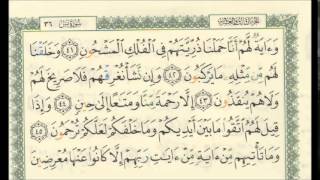 الجزء الثالث والعشرون سورة يس ٣٦
وَءَايَةٌ لَّهُمْ أَنَّا حَمَلْنَا ذُرِّيَّتَهُمْ فِي ٱلْفُلْكِ ٱلْمَشْحُونِ ٤١ وَخَلَقْنَا
لَهُم مِّن مِّثْلِهِۦ مَا يَرْكَبُونَ ٤٢ وَإِن نَّشَأْ نُغْرِقْهُمْ فَلَا صَرِيخَ لَهُمْ
وَلَا هُمْ يُنقَذُونَ ٤٣ إِلَّا رَحْمَةً مِّنَّا وَمَتَٰعًا إِلَىٰ حِينٍ ٤٤ وَإِذَا
قِيلَ لَهُمُ ٱتَّقُوا۟ مَا بَيْنَ أَيْدِيكُمْ وَمَا خَلْفَكُمْ لَعَلَّكُمْ تُرْحَمُونَ ٤٥
وَمَا تَأْتِيهِم مِّنْ ءَايَةٍ مِّنْ ءَايَٰتِ رَبِّهِمْ إِلَّا كَانُوا۟ عَنْهَا مُعْرِضِينَ